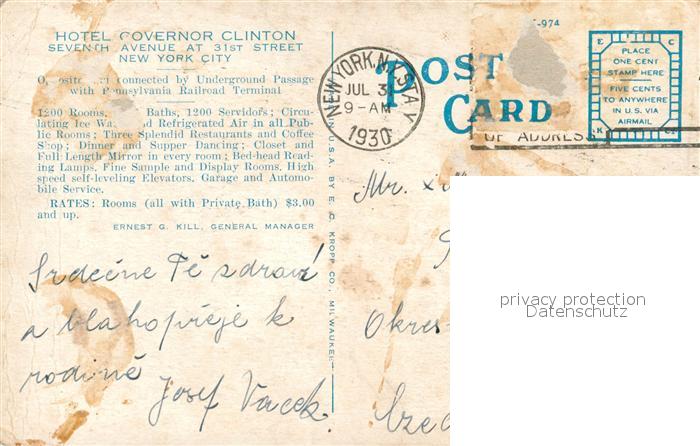 HOTEL GOVERNOR CLINTON
SEVENTH AVENUE AT 31ST STREET
NEW YORK CITY
connected by Underground Passage
with Pennsylvania Railroad Terminal
1200 Rooms, Baths, 1200 Servidors; Circu-
lating Ice Wa and Refrigerated Air in all Pub-
lic Rooms; Three Splendid Restaurants and Coffee
Shop; Dinner and Supper Dancing; Closet and
Full Length Mirror in every room; Bed-head Read-
ing Lamps. Fine Sample and Display Rooms. High
speed self-leveling Elevators. Garage and Automo-
bile Service.
RATES: Rooms (all with Private Bath) $3.00
and up.
ERNEST G. KILL, GENERAL MANAGER
Srdečně Tě zdraví
a blahopřeje k
rodině Josef Vacek.
IN U.S.A. BY E. C. KROPP CO., MILWAUKEE
NEW YORK, N.Y. STA V
JUL 3
9-AM
1930
POST
CARD
-974
E C
PLACE
ONE CENT
STAMP HERE
FIVE CENTS
TO ANYWHERE
IN U.S. VIA
AIRMAIL
K
OF ADDRESS
Mr.
Okres
privacy protection
Datenschutz